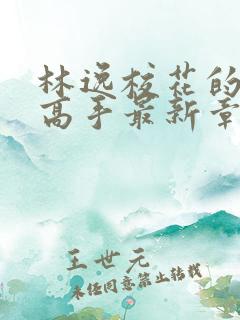 林逸校花的
高手最新章
王世元
未经同意禁止转载